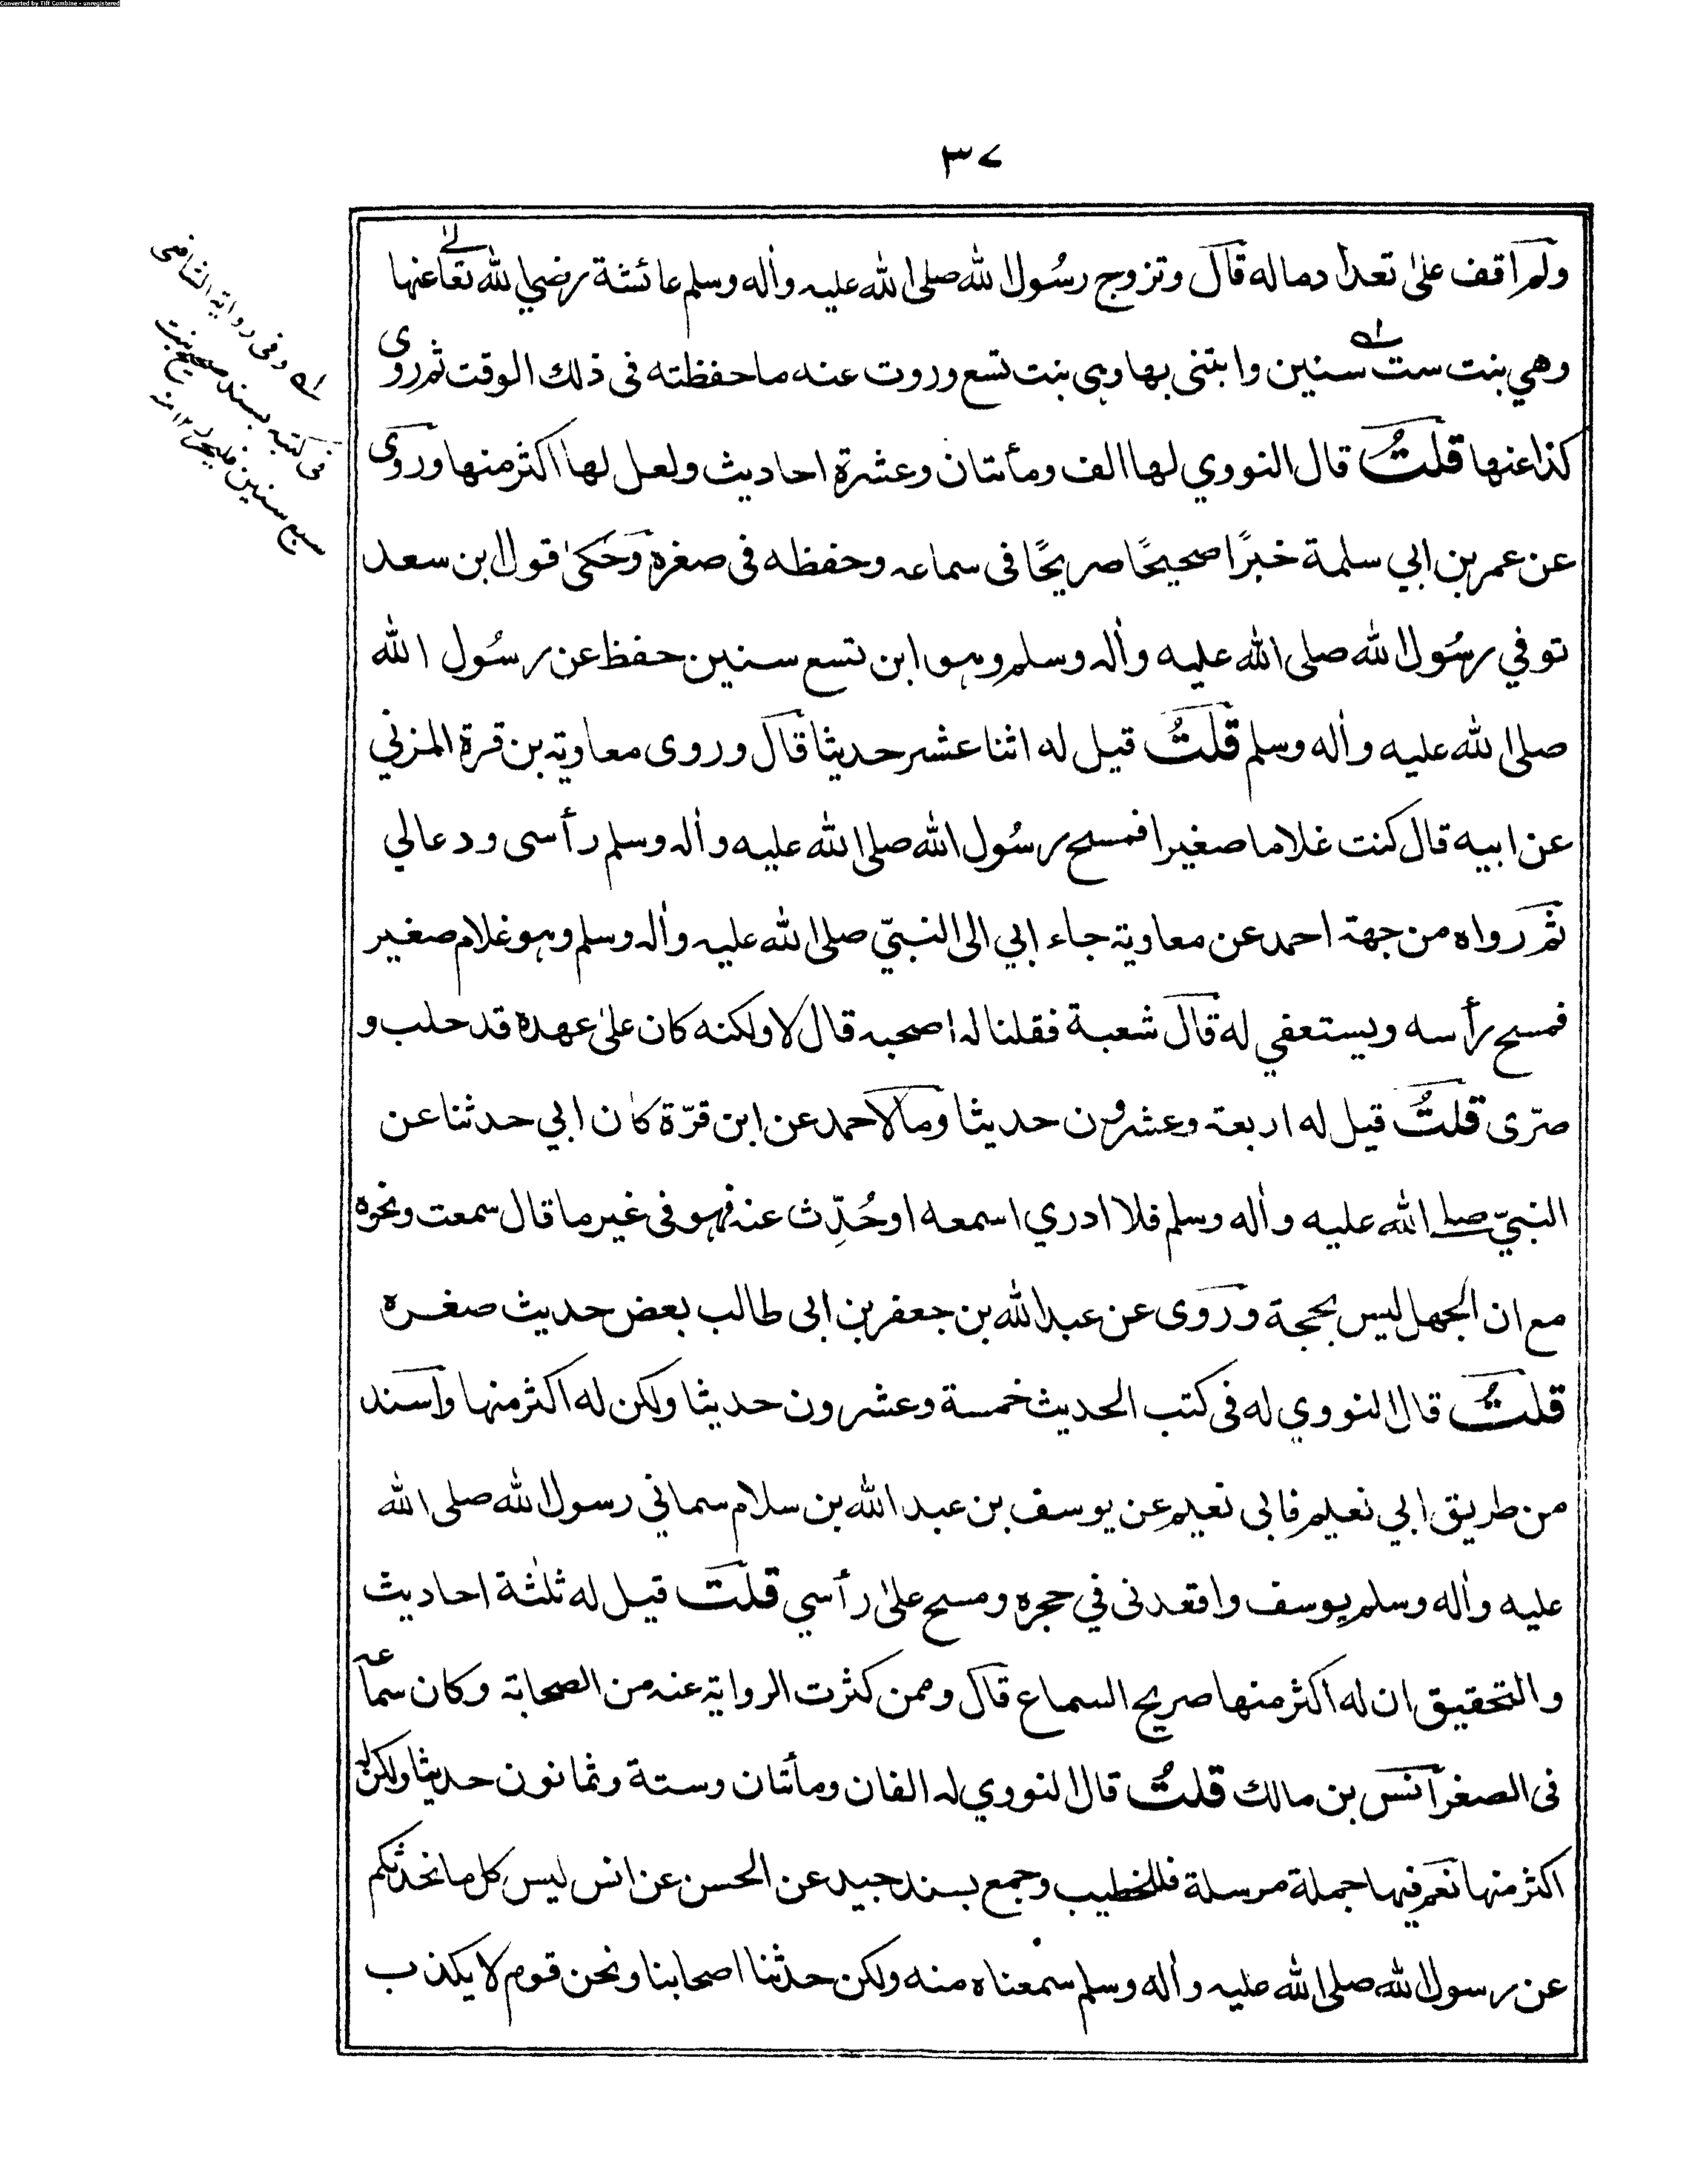 Converted by Tiff Combine - unregistered
٣٧
ولم اقف على تعداد ماله قال وتزوج رسُول الله صلى الله عليه واٰله وسلم عائشة رضي الله تعالىٰ عنها
وهي بنت ست سنين وابتنى بها وهي بنت تسع وروت عنه ما حفظته فى ذلك الوقت ثم روى
كذا عنها قلتُ قال النووي لها الف ومأتان وعشرة احاديث ولعل لها اكثر منها وروى
عن عمر بن ابي سلمة خبرًا صحيحًا صريحًا فى سماعه وحفظه فى صغره وحكىٰ قول ابن سعد
توفي رسُول الله صلى الله عليه واٰله وسلم وهو ابن تسع سنين حفظ عن رسُول الله
صلى الله عليه واٰله وسلم قلتُ قيل له اثنا عشر حديثا قال وروى معاوية بن قرة المزني
عن ابيه قال كنت غلاما صغيرا فمسح رسُول الله صلى الله عليه واٰله وسلم رأسى ودعا لي
ثم رواه من جهة احمد عن معاوية جاء ابي الى النبيّ صلى الله عليه واٰله وسلم وهو غلام صغير
فمسح رأسه ويستعفي له قال شعبة فقلنا له اصحبه قال لا ولكنه كان علىٰ عهده قد حلب و
صرّى قلتُ قيل له اربعة وعشرون حديثا وما لاحمد عن ابن قرّة كان ابي حدثنا عن
النبيّ صلى الله عليه واٰله وسلم فلا ادري اسمعه او حُدِّث عنه فهو فى غير ما قال سمعت ونحوه
مع ان الجهل ليس بحجة وروى عن عبد الله بن جعفر بن ابى طالب بعض حديث صغره
قلتُ قال النووي له فى كتب الحديث خمسة وعشرون حديثا ولكن له اكثر منها واسند
من طريق ابي نعيم فابى نعيم عن يوسف بن عبد الله بن سلام سماني رسول الله صلى الله
عليه واٰله وسلم يوسف واقعدنى في حجره ومسح علىٰ رأسي قلت قيل له ثلثة احاديث
والتحقيق ان له اكثر منها صريح السماع قال وممن كثرت الرواية عنه من الصحابة وكان سماعه
فى الصغر انس بن مالك قلتُ قال النووي له الفان ومأتان وستة وثمانون حديثا ولكن له
اكثر منها نعم فيها جملة مرسلة فللخطيب وجمع بسند جيد عن الحسن عن انس ليس كل ما نحدثكم
عن رسول الله صلى الله عليه واٰله وسلم سمعناه منه ولكن حدثنا اصحابنا ونحن قوم لا يكذب
وفى رواية الشافعى
فى كتبه بسند صحيح بنت
سبع سنين ١٢ منه